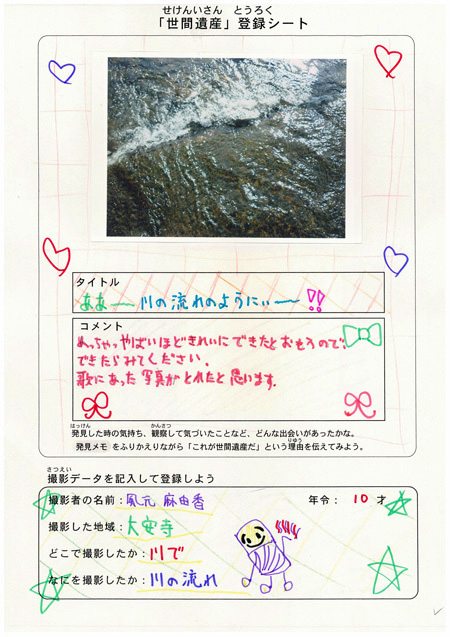 せけんいさん とうろく
「世間遺産」登録シート
タイトル
ああ～川の流れのようにぃ～!!
コメント
めっちゃやばいほどきれいにできたとおもうので、
できたらみてください.
歌にあった写真がとれたと思います.
はっけん かんさつ
発見した時の気持ち、観察して気づいたことなど、どんな出会いがあったかな。
りゆう
発見メモ をふりかえりながら「これが世間遺産だ」という理由を伝えてみよう。
さつえい
撮影データを記入して登録しよう
撮影者の名前：風元 麻由香 年令：10 才
撮影した地域：大安寺
どこで撮影したか：川で
なにを撮影したか：川の流れ